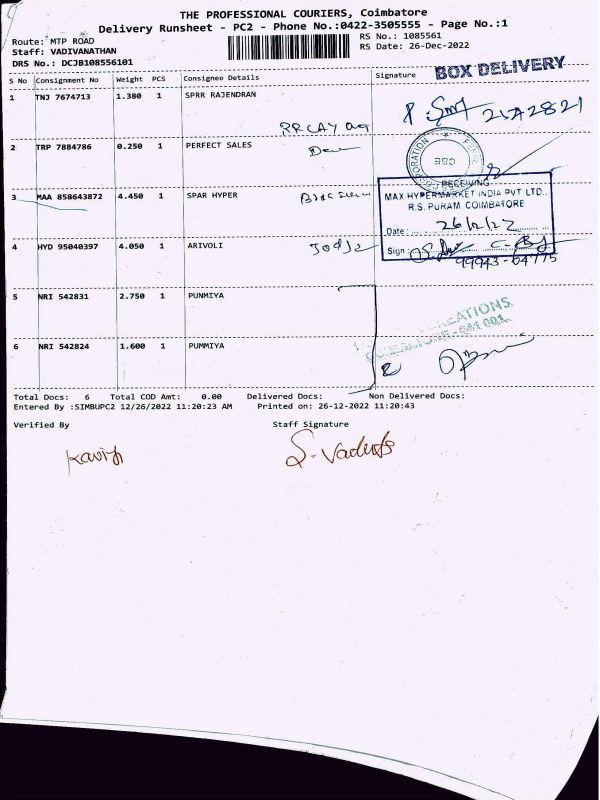 THE PROFESSIONAL COURIERS, Coimbatore
Delivery Runsheet - PC2 - Phone No.:0422-3505555 - Page No.:1
Route: MTP ROAD
RS No.: 1085561
Staff: VADIVANATHAN
RS Date: 26-Dec-2022
DRS No.: DCJB108556101
BOX DELIVERY
S No Consignment No Weight PCS Consignee Details Signature
1 TNJ 7674713 1.380 1 SPRR RAJENDRAN
2 TRP 7884786 0.250 1 PERFECT SALES
CBE
RECEIVING
3 MAA 858643872 4.450 1 SPAR HYPER
MAX HYPERMARKET INDIA PVT LTD.
R.S. PURAM COIMBATORE
Date : 26/12/22
4 HYD 95040397 4.050 1 ARIVOLI
Sign :
99943-64775
5 NRI 542831 2.750 1 PUNMIYA
6 NRI 542824 1.600 1 PUMMIYA
Total Docs: 6 Total COD Amt: 0.00 Delivered Docs: Non Delivered Docs:
Entered By :SIMBUPC2 12/26/2022 11:20:23 AM Printed on: 26-12-2022 11:20:43
Verified By Staff Signature